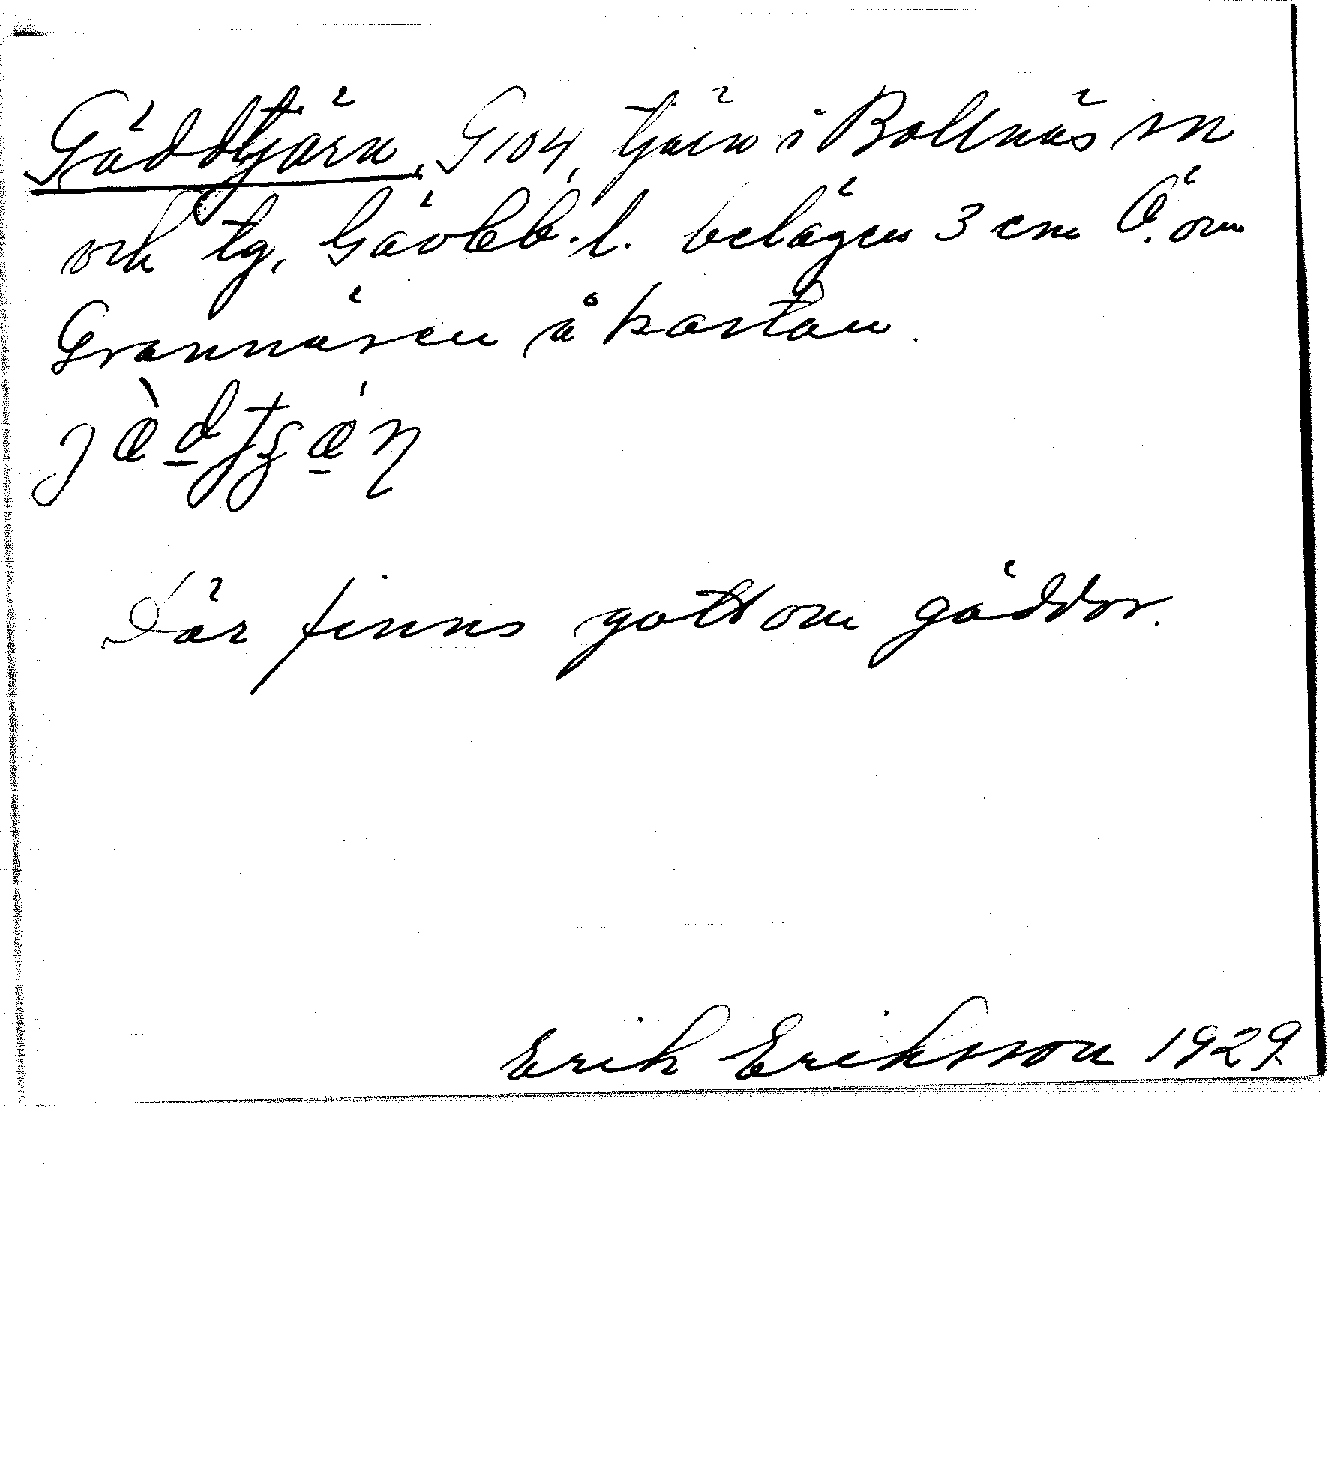 Gäddtjärn, G 104, tjärn i Bollnäs sn
och tg, Gävleb. l. belägen 3 cm Ö. om
Grannäsen å kartan.
Där finns gott om gäddor.
Erik Eriksson 1929